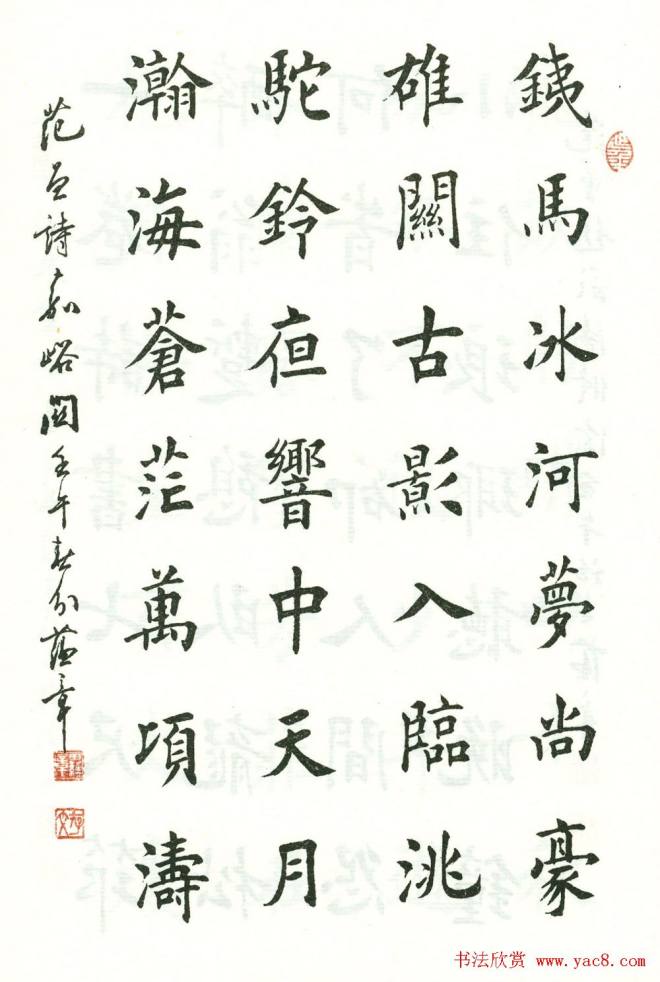 銕馬冰河夢尚豪
雄關古影入臨洮
駝鈴亱響中天月
瀚海蒼茫萬頃濤
范曾詩嘉峪関壬午春分章
书法欣赏 www.yac8.com